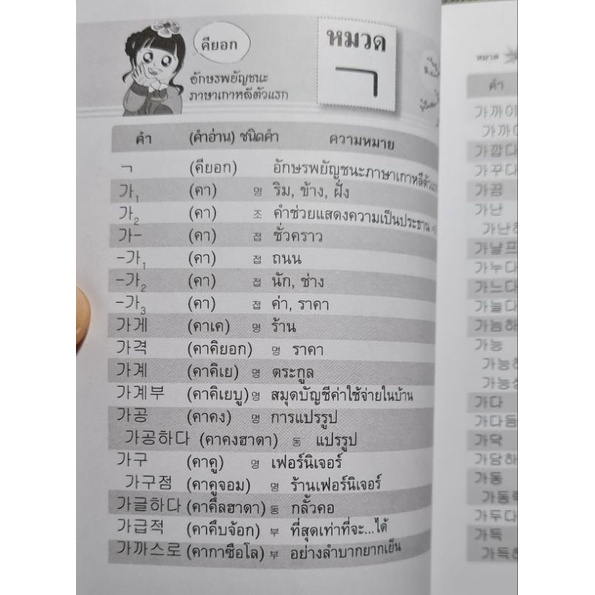 คียอก
หมวด
ㄱ
อักษรพยัญชนะ
ภาษาเกาหลีตัวแรก
คำ (คำอ่าน) ชนิดคำ ความหมาย
ㄱ (คียอก) อักษรพยัญชนะภาษาเกาหลีตัวแรก
가1 (คา) 명 ริม, ข้าง, ฝั่ง
가2 (คา) 조 คำช่วยแสดงความเป็นประธาน
가- (คา) 접 ชั่วคราว
-가1 (คา) 접 ถนน
-가2 (คา) 접 นัก, ช่าง
-가3 (คา) 접 ค่า, ราคา
가게 (คาเค) 명 ร้าน
가격 (คาคิยอก) 명 ราคา
가계 (คาคิเย) 명 ตระกูล
가계부 (คาคิเยบู) 명 สมุดบัญชีค่าใช้จ่ายในบ้าน
가공 (คาคง) 명 การแปรรูป
가공하다 (คาคงฮาดา) 동 แปรรูป
가구 (คาคู) 명 เฟอร์นิเจอร์
가구점 (คาคูจอม) 명 ร้านเฟอร์นิเจอร์
가글하다 (คาคึลฮาดา) 동 กลั้วคอ
가급적 (คาคึบจ้อก) 부 ที่สุดเท่าที่จะ...ได้
가까스로 (คากาซือโล) 부 อย่างลำบากยากเย็น
หมวด
คำ
가까이
가까
가깝다
가꾸다
가끔
가난
가난
가날프
가누다
가느다
가늘다
가늠하
가능
가능
가능성
가다
가다듬
가닥
가담하
가동
가동
가두다
가득
가득